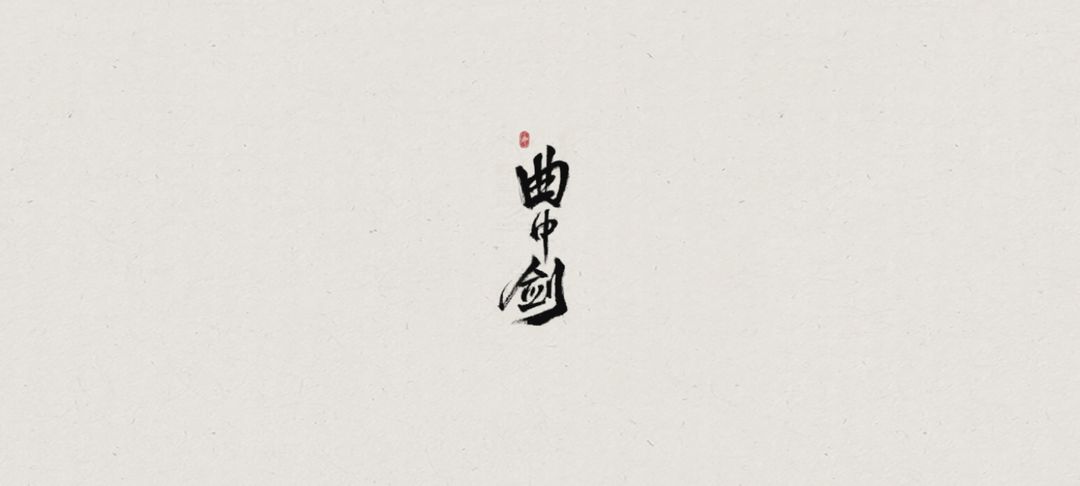 曲中剑